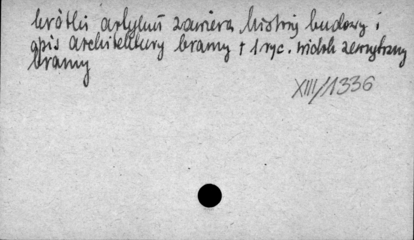 krótki artykuł zawiera historię budowy i
opis architektury bramy + 1 ryc. widok zewnętrzny
bramy
XIII/1336